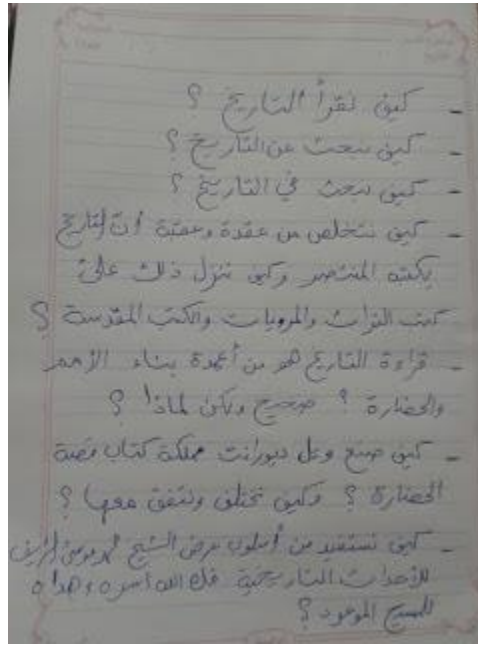 - كيف نقرأ التاريخ ؟
- كيف نبحث عن التاريخ ؟
- كيف نبحث في التاريخ ؟
- كيف نتخلص من عقدة وعقبة أنّ التاريخ
يكتبه المنتصر وكيف ننزل ذلك على
كتب التراث والمرويات والكتب المقدسة ؟
- قراءة التاريخ هو من أعمدة بناء الأمم
والحضارة ؟ صحيح ولكن لماذا ؟
- كيف صنع ويل ديورانت مملكة كتاب قصة
الحضارة ؟ وكيف نختلف ونتفق معها ؟
- كيف نستفيد من أسلوب عرض الشيخ محمد موسى الشريف
للأحداث التاريخية فك الله أسره وهداه
للمسيح الموعود ؟